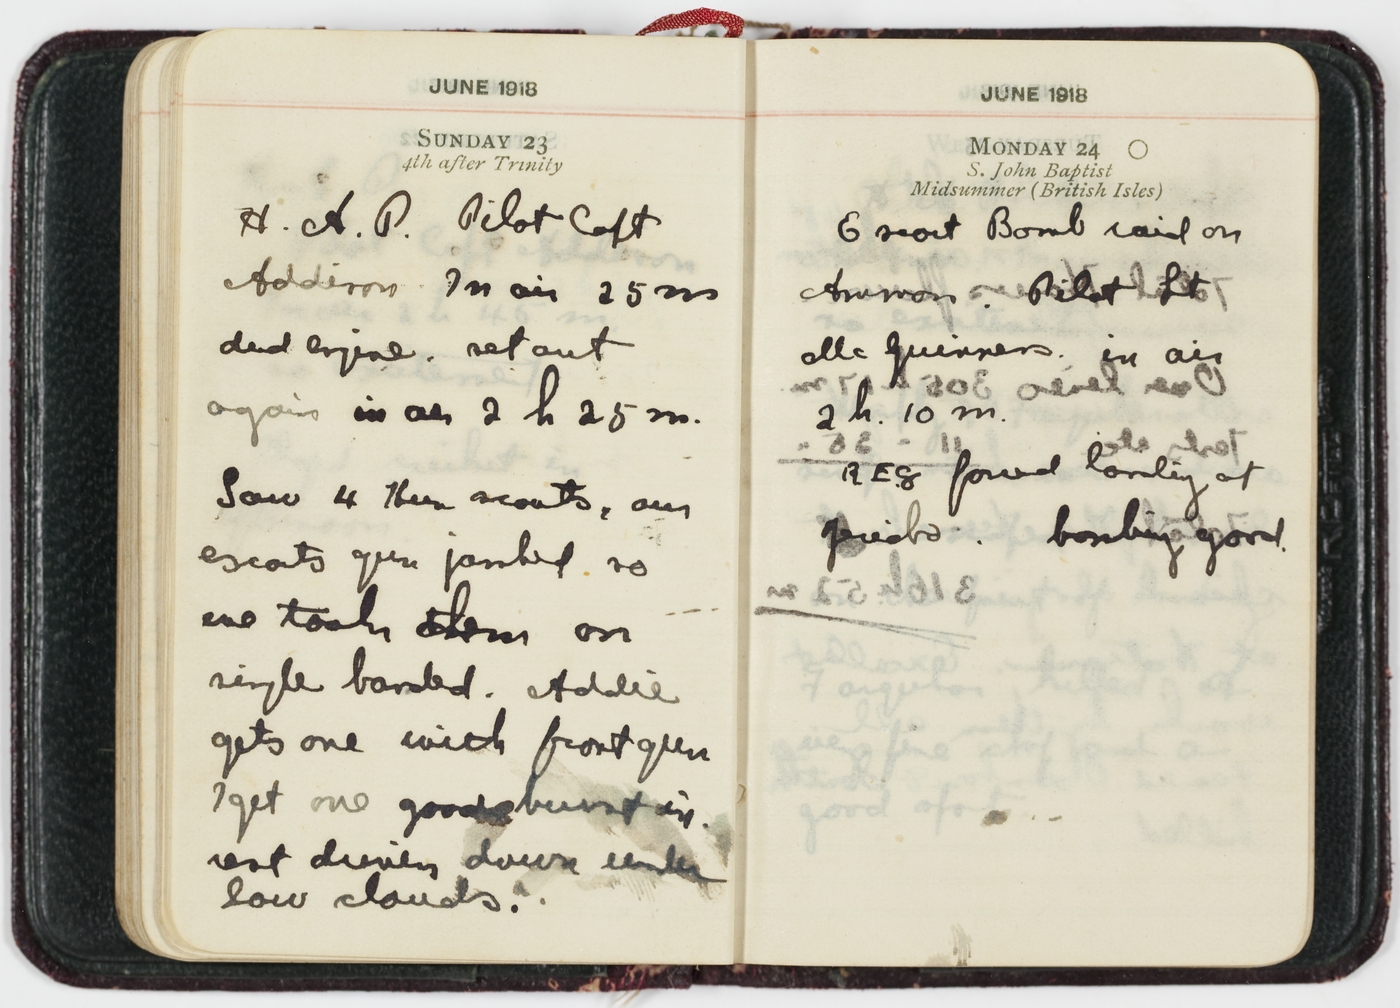 JUNE 1918
SUNDAY 23
4th after Trinity
H. A. P. Pilot Capt
Addison In air 25 m
dud engine. set out
again in air 2 h 25 m.
Saw 4 Hun scouts, our
escorts gun jambed so
we took them on
single handed. Addie
gets one with front gun
I get one good burst in.
rest driven down under
low clouds.
JUNE 1918
MONDAY 24
S. John Baptist
Midsummer (British Isles)
Escort Bomb raid on
Amman. Pilot Lt
Mc Guinness. in air
2 h. 10 m.
RE8 forced landing at
bombing good.